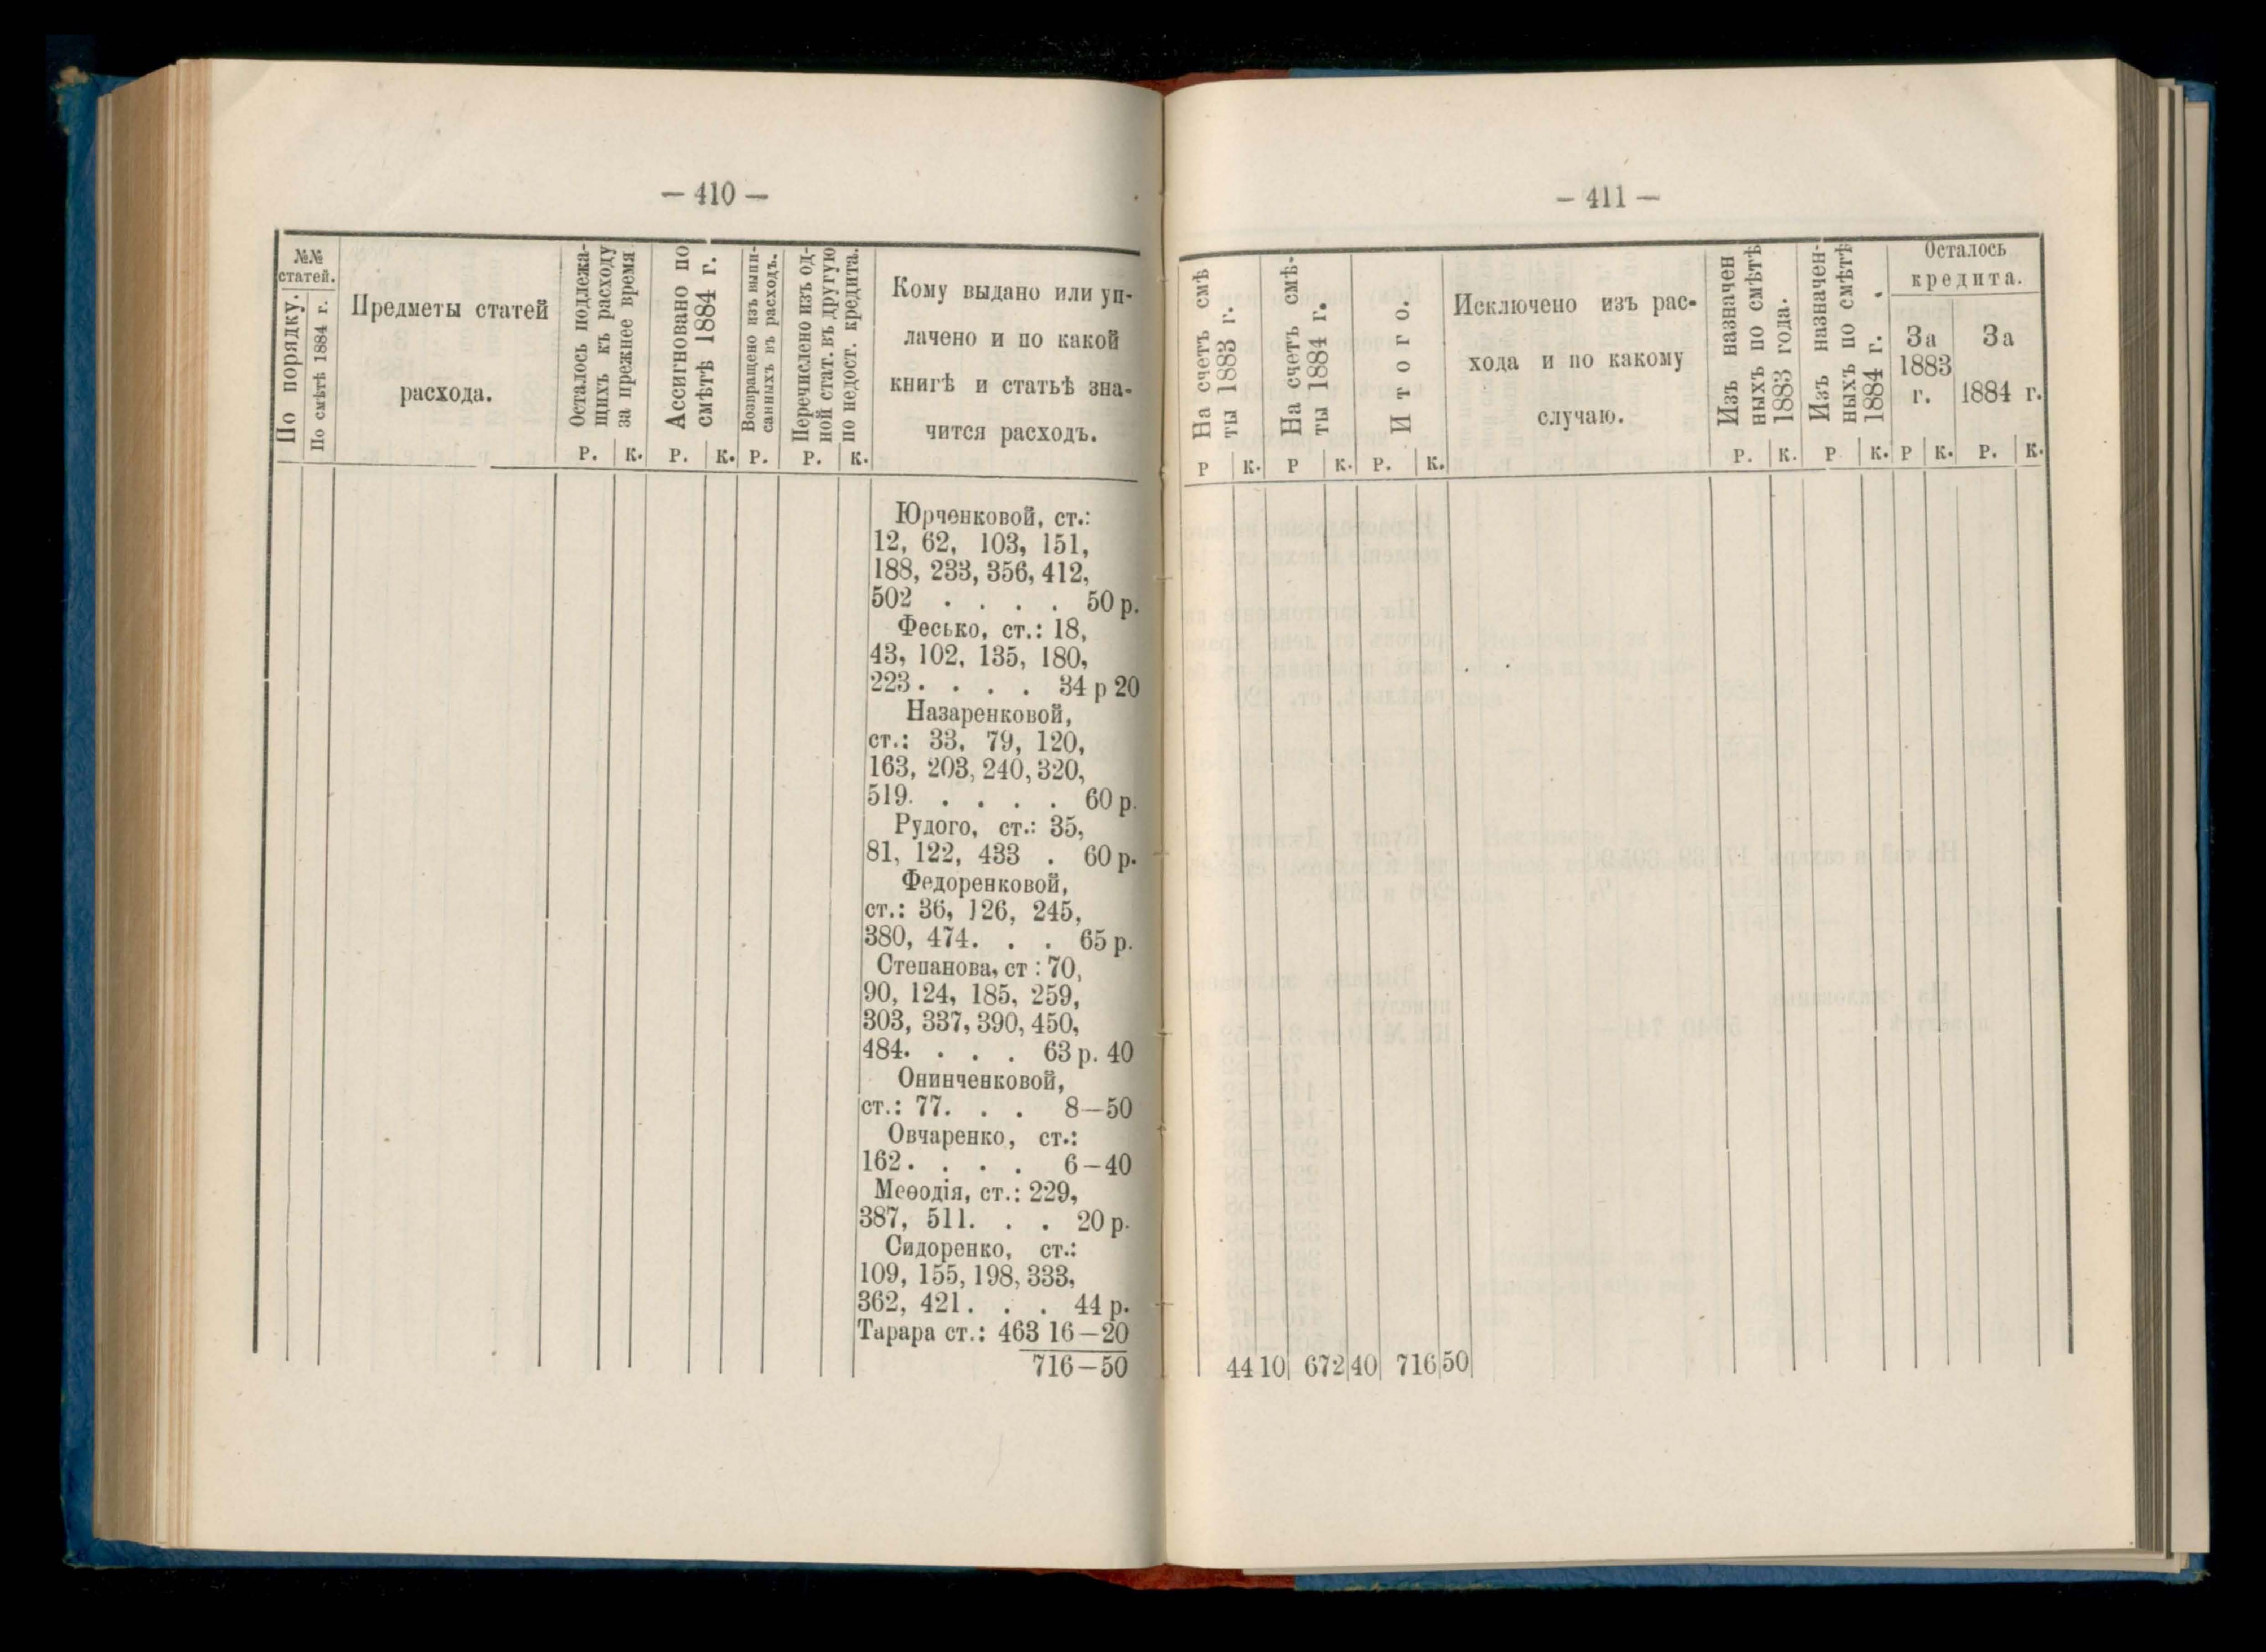 — 410 —
№№
статей.
По порядку.
По смѣтѣ 1884 г.
Предметы статей
расхода.
Осталось подлежа-
щихъ къ расходу
за прежнее время
Ассигновано по
смѣтѣ 1884 г.
Возвращено изъ выпи-
санныхъ въ расходъ.
Перечислено изъ од-
ной стат. въ другую
по недост. кредита.
Кому выдано или уп-
лачено и по какой
книгѣ и статьѣ зна-
чится расходъ.
Р. К. Р. К. Р. Р. К.
Юрченковой, ст.:
12, 62, 103, 151,
188, 233, 356, 412,
502 . . . . 50 р.
Фесько, ст.: 18,
43, 102, 135, 180,
223 . . . . 34 р 20
Назаренковой,
ст.: 33, 79, 120,
163, 203, 240, 320,
519. . . . . 60 р.
Рудого, ст.: 35,
81, 122, 433 . 60 р.
Федоренковой,
ст.: 36, 126, 245,
380, 474. . . 65 р.
Степанова, ст : 70,
90, 124, 185, 259,
303, 337, 390, 450,
484. . . . 63 р. 40
Онинченковой,
ст.: 77. . . 8—50
Овчаренко, ст.:
162. . . . 6—40
Меѳодія, ст.: 229,
387, 511. . . 20 р.
Сидоренко, ст.:
109, 155, 198, 333,
362, 421. . . 44 р.
Тарара ст.: 463 16—20
716—50
— 411 —
На счетъ смѣ
ты 1883 г.
На счетъ смѣ-
ты 1884 г.
Итого.
Исключено изъ рас-
хода и по какому
случаю.
Изъ назначен
ныхъ по смѣтѣ
1883 года.
Изъ назначен-
ныхъ по смѣтѣ
1884 г.
Осталось
кредита.
За
1883
г.
За
1884 г.
Р К. Р К. Р. К. Р. К. Р К. Р К. Р. К.
44 10 672 40 716 50